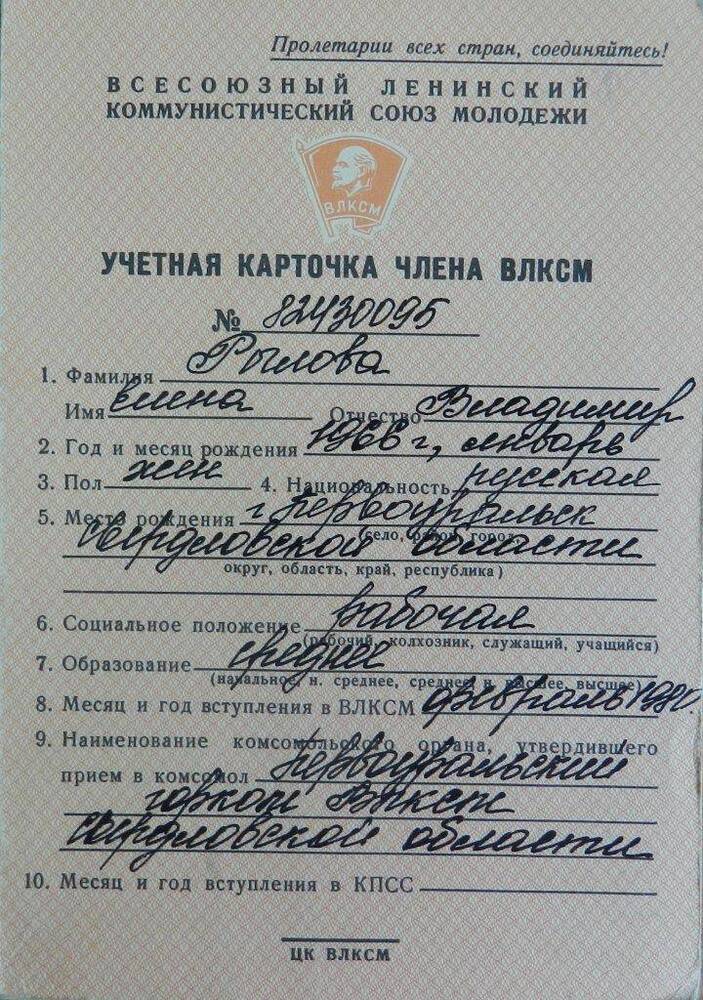 Пролетарии всех стран, соединяйтесь!
ВСЕСОЮЗНЫЙ ЛЕНИНСКИЙ
КОММУНИСТИЧЕСКИЙ СОЮЗ МОЛОДЕЖИ
ВЛКСМ
УЧЕТНАЯ КАРТОЧКА ЧЛЕНА ВЛКСМ
№ 82430095
1. Фамилия Рылова
Имя Елена Отчество Владимир
2. Год и месяц рождения 1966 г, январь
3. Пол жен 4. Национальность русская
5. Место рождения г. Первоуральск
(село, район, город,
Свердловской области
округ, область, край, республика)
6. Социальное положение рабочая
(рабочий, колхозник, служащий, учащийся)
7. Образование среднее
(начальное, н. среднее, среднее, н. высшее, высшее)
8. Месяц и год вступления в ВЛКСМ февраль 1981г.
9. Наименование комсомольского органа, утвердившего
прием в комсомол Первоуральский
горком ВЛКСМ
Свердловской области
10. Месяц и год вступления в КПСС
ЦК ВЛКСМ